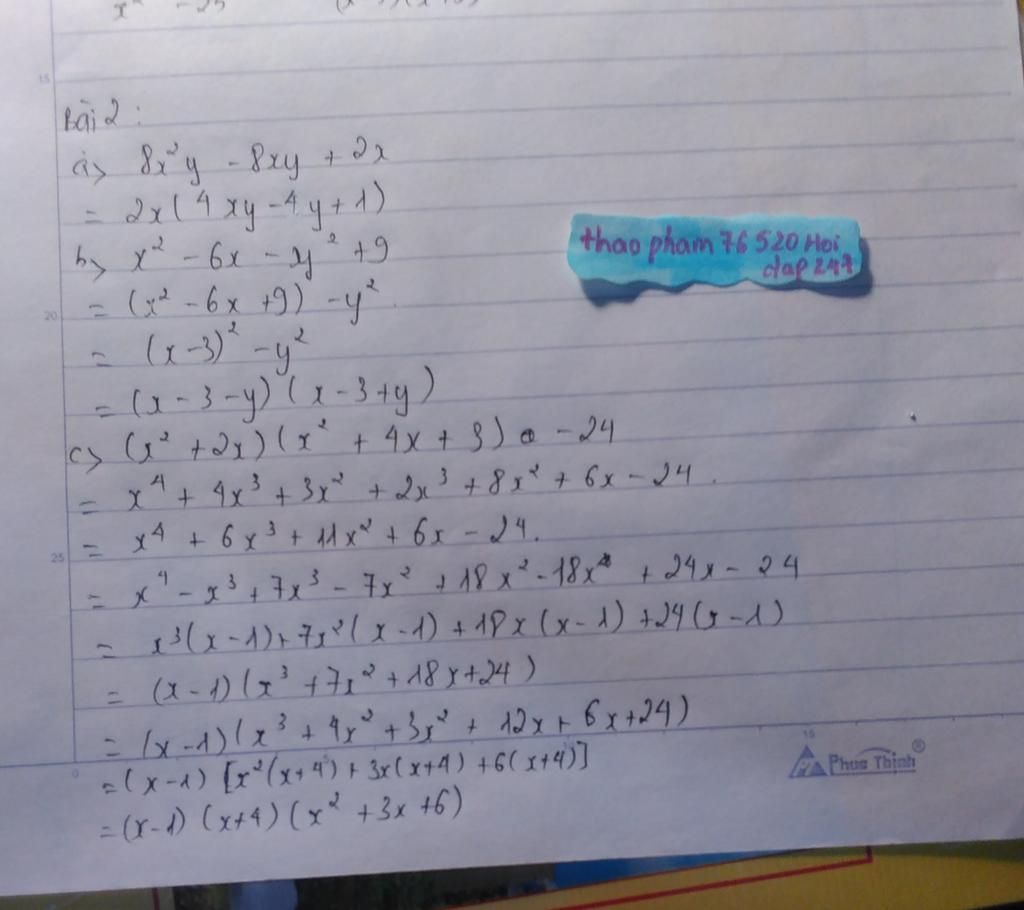 Bài 2 :
a> 8x²y - 8xy + 2x
= 2x(4xy-4y+1)
b> x² - 6x - y² +9
= (x² - 6x +9) - y²
= (x-3)² - y²
= (x-3-y)(x-3+y)
c> (x² +2x)(x² + 4x + 3) - 24
= x⁴ + 4x³ + 3x² + 2x³ + 8x² + 6x - 24.
= x⁴ + 6x³ + 11x² + 6x - 24.
= x⁴ - x³ + 7x³ - 7x² + 18x² - 18x + 24x - 24
= x³(x-1)+7x²(x-1)+18x(x-1)+24(x-1)
= (x-1)(x³ +7x² +18x+24)
= (x-1)(x³ + 4x² +3x² + 12x + 6x+24)
= (x-1) [x²(x+4) + 3x(x+4) +6(x+4)]
= (x-1) (x+4)(x² +3x+6)
thao pham 76520 Hoi
dap 247
Phuc Thinh®
15
20
25
0
15